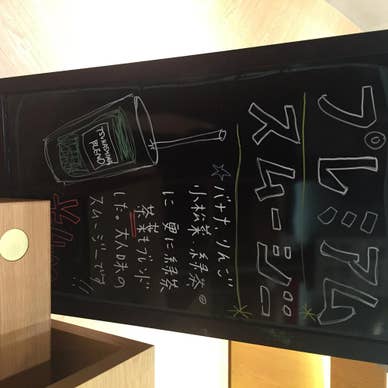 プレミアム
スムージー
☆バナナ、りんご
小松菜、緑茶
に更に緑茶
茶葉をブレンド
した。大人味の
スムージーです
BLEND